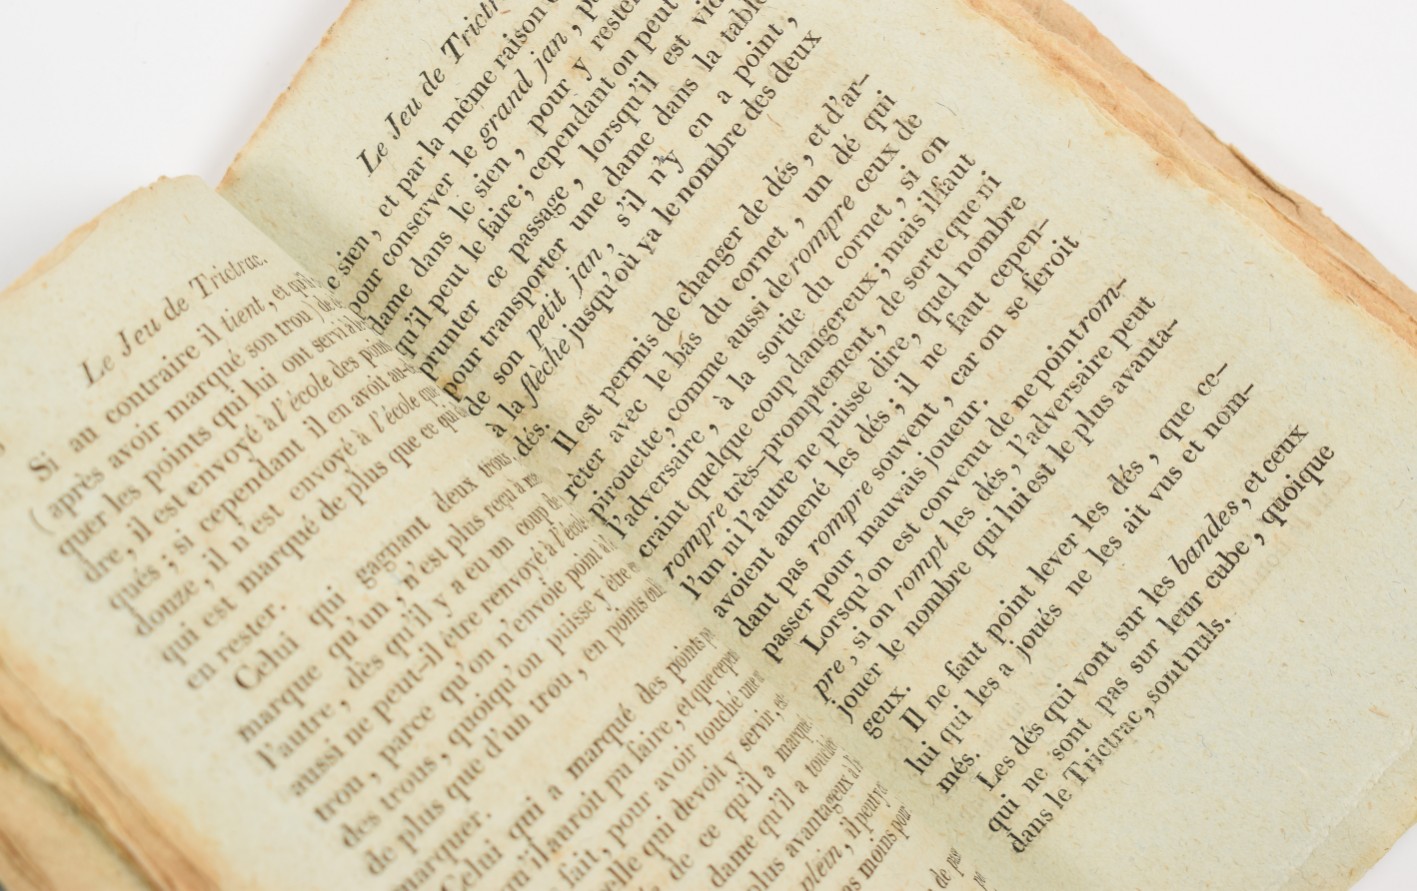 Le Jeu de Trictrac.
Si au contraire il tient, et qu'il
(après avoir marqué son trou) de
quer les points qui lui ont servi à
dre, il est envoyé à l'école des points
qués; si cependant il en avoit au-
douze, il n'est envoyé à l'école que
qui est marqué de plus que ce qui
en rester.
Celui qui gagnant deux trous,
marque qu'un, n'est plus reçu à
l'autre, dès qu'il y a eu un coup de
aussi ne peut-il être renvoyé à l'école
trou, parce qu'on n'envoie point à
des trous, quoiqu'on puisse y être
de plus que d'un trou, en points
marquer.
Celui qui a marqué des points
qu'il auroit pu faire, et que
fait, pour avoir touché une
elle qui devoit y servir,
de ce qu'il a marqué
dame qu'il a touchée
plus avantageux à
plein, il peut
moins pour
de
Le Jeu de Trictr
e sien, et par la même raison
pour conserver le grand jan,
dame dans le sien, pour y rester
qu'il peut le faire; cependant on peut
prunter ce passage, lorsqu'il est
pour transporter une dame dans la table
de son petit jan, s'il n'y en a point,
à la flèche jusqu'où va le nombre des deux
dés.
Il est permis de changer de dés, et d'ar-
rêter avec le bas du cornet, un dé qui
pirouette, comme aussi de rompre ceux de
l'adversaire, à la sortie du cornet, si on
craint quelque coup dangereux; mais il faut
rompre très-promptement, de sorte que ni
l'un ni l'autre ne puisse dire, quel nombre
avoient amené les dés; il ne faut cepen-
dant pas rompre souvent, car on se feroit
passer pour mauvais joueur.
Lorsqu'on est convenu de ne point rom-
pre, si on rompt les dés, l'adversaire peut
jouer le nombre qui lui est le plus avanta-
geux.
Il ne faut point lever les dés, que ce-
lui qui les a joués ne les ait vus et nom-
més.
Les dés qui vont sur les bandes, et ceux
qui ne sont pas sur leur cube, quoique
dans le Trictrac, sont nuls.